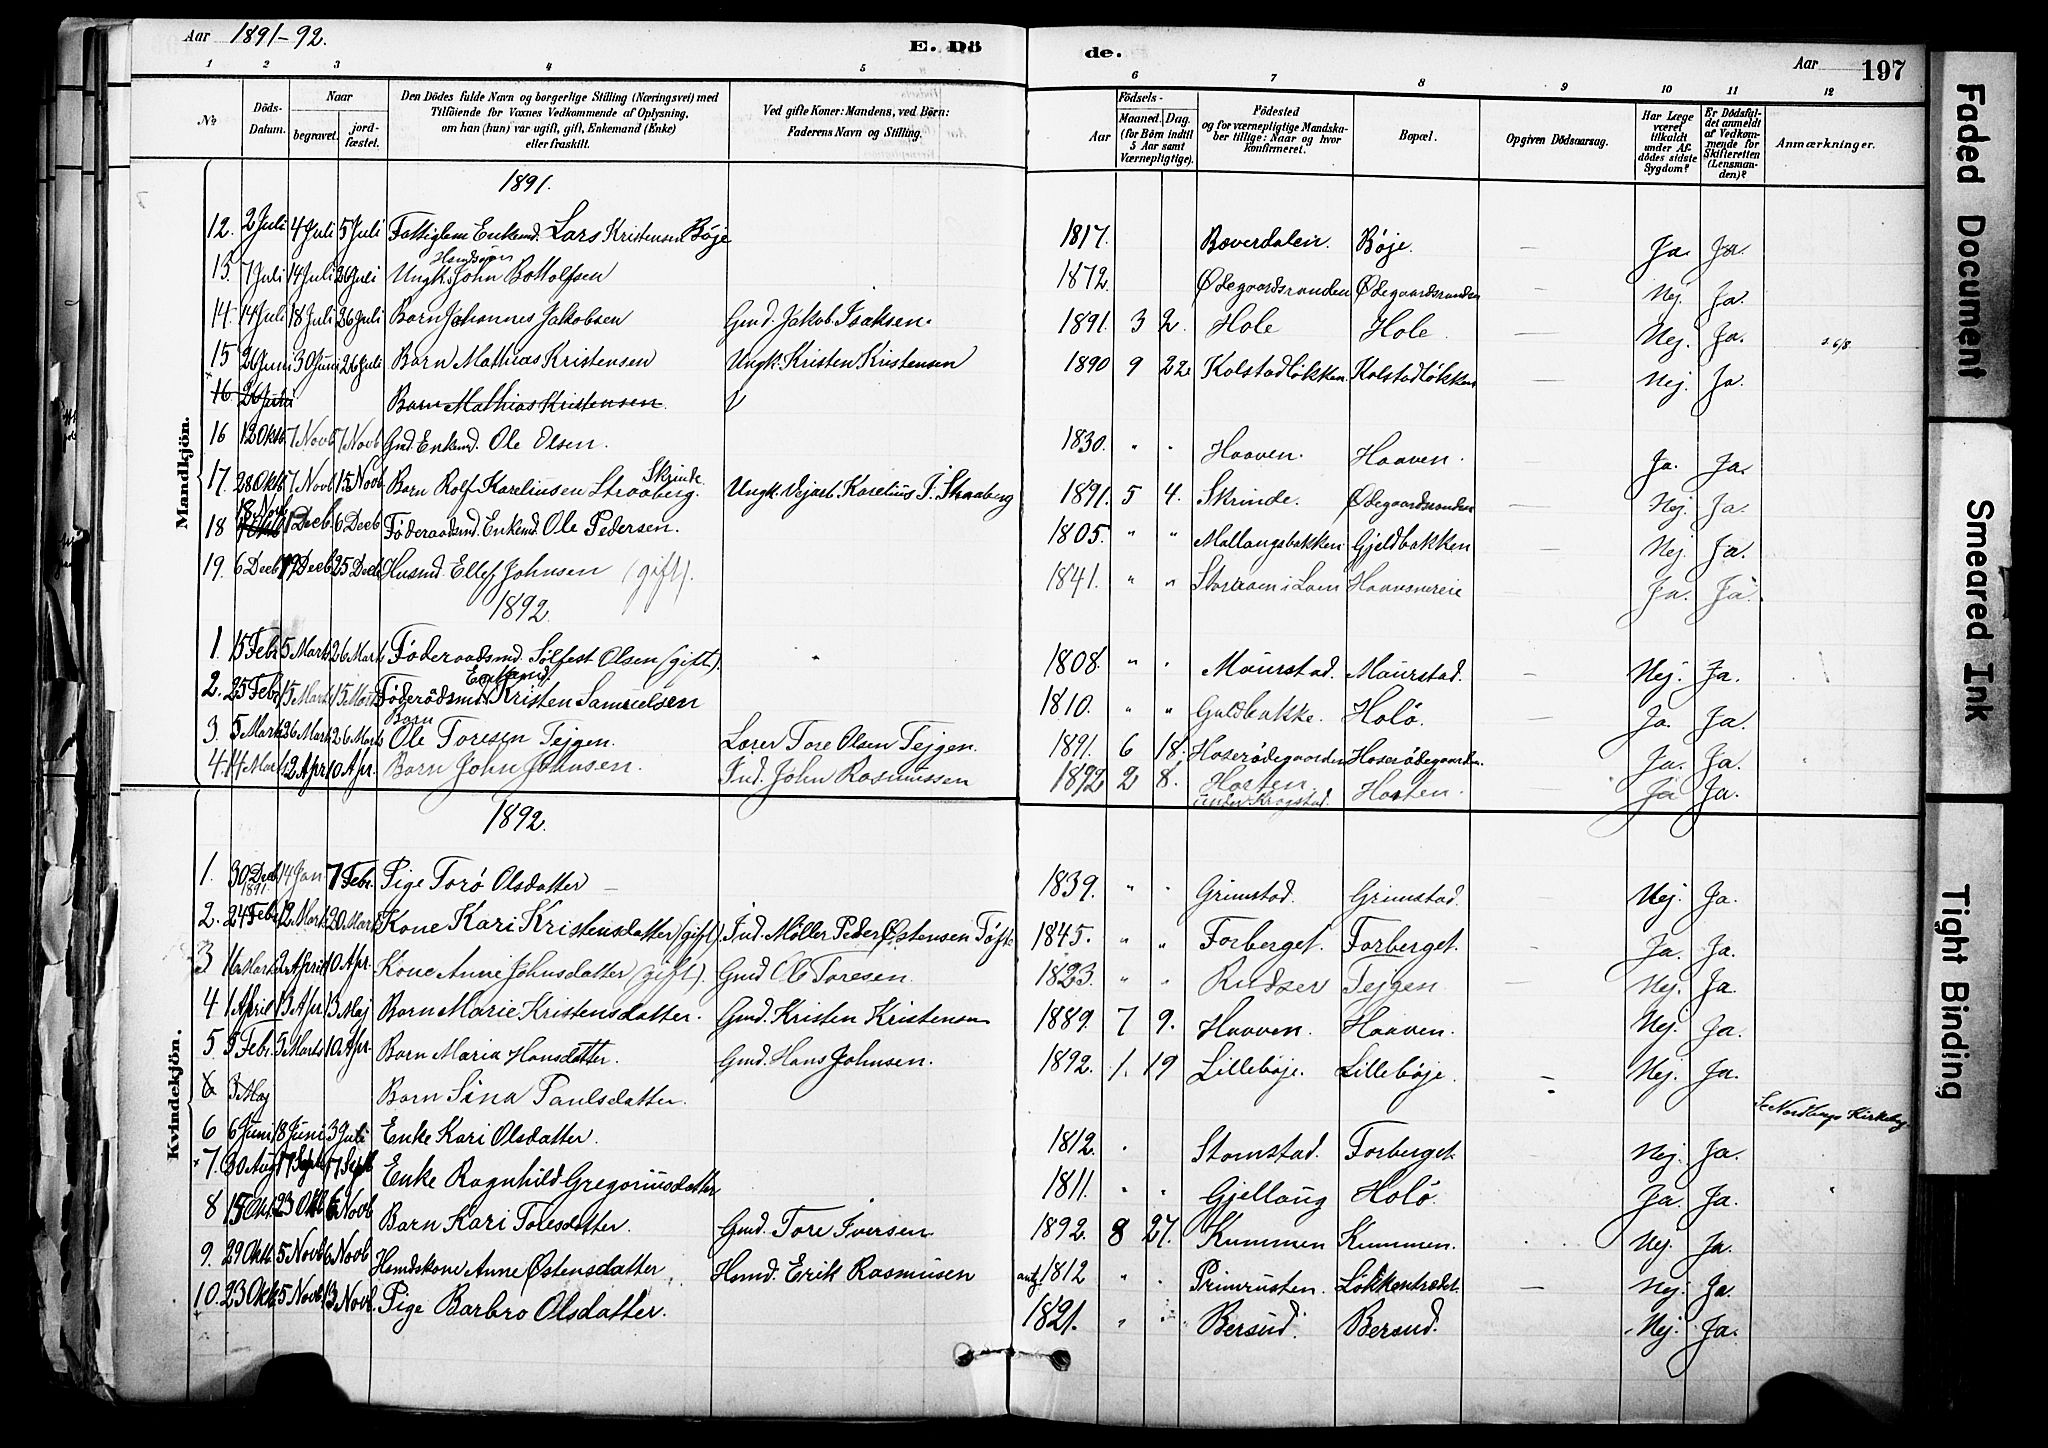 Aar 1891-92. E. Dö de. Aar 197
1 2 3 4 5 6 7 8 9 10 11 12
No Döds-Datum. Naar begravet. jordfæstet. Den Dödes fulde Navn og borgerlige Stilling (Næringsvei) med Tilföiende for Voxnes Vedkommende af Oplysning, om han (hun) var ugift, gift, Enkemand (Enke) eller fraskilt. Ved gifte Koner: Mandens, ved Börn: Faderens Navn og Stilling. Födsels- Aar Maaned. Dag. (for Börn indtil 5 Aar samt Værnepligtige). Födested og for værnepligtige Mandskaber tillige: Naar og hvor konfirmeret. Bopæl. Opgiven Dödsaarsag. Har Læge været tilkaldt under Afdödes sidste Sygdom? Er Dödsfaldet anmeldt af Vedkommende for Skifteretten (Lensmanden)? Anmærkninger.
Mandkjön.
1891.
12. 2 Juli 4 Juli 5 Juli Fattiglem Enkemd. Lars Kristensen Böje 1817. Bæverdalen. Böje. — Ja. Ja.
13. 7 Juli 14 Juli 26 Juli Ungk. John Bottolfsen 1872. Ødegaardsranden Ødegaardsranden — Nej. Ja.
14. 14 Juli 18 Juli 26 Juli Barn Johannes Jakobsen Gmd. Jakob Isaksen. 1891. 3 2. Hole Hole. — Nej. Ja.
15 26 Juni 30 Juni 26 Juli Barn Mathias Kristensen Ungk. Kristen Kristensen 1890 9 22 Kolstadløkken Kolstadløkken — Nej. Ja.
16 26 Juni Barn Mathias Kristensen.
16 12 Oktb. 7 Novb 7 Novb Gmd. Enkemd. Ole Olsen. 1830. " " Haaven. Haaven. Ja. Ja.
17. 28 Oktb. 7 Novb 15 Novb. Barn Rolf Kareliusen Straaberg. Skrinde Ungk. Vejarb. Karelius J. Straaberg 1891. 5 4. Skrinde. Ødegaardsranden — Nej. Ja.
18 18 Novb 1 Decb. 6 Decb Föderaadsmd. Enkemd. Ole Pedersen. 1805. " " Mallangsbakken Gjeldbakken — Nej. Ja.
19. 6 Decb 19 Decb. 25 Decb Husmd. Ellef Johnsen (gift). 1841. " " i Lom — Ja. Ja.
1892.
1. 15 Febr 5 Marts 26 Marts Föderaadsmd. Sølfest Olsen (gift). 1808. " " Maurstad. Maurstad. — Nej. Ja.
2. 25 Febr 15 Marts 15 Marts Föderådsmd. Enkemd. Kristen Samuelsen 1810. " " Guldbakke. Holö. — Ja. Ja.
3. 5 Marts 26 Marts 26 Marts Barn Ole Toresen Tejgen. Lærer Tore Olsen Tejgen. 1891. 6 18. Hoserødegaarden Hoserødegaarden. — Ja. Ja.
4. 14 Marts 2 Apr. 10 Apr. Barn John Johnsen. Ind. John Rasmussen 1892 2 8. Horten. under Krogstad. Horten. Ja Ja.
Kvindekjön.
1892.
1. 30 Decb. 1891. 14 Jan 7 Febr. Pige Torö Olsdatter — 1839. " " Grimstad. Grimstad. Nej. Ja.
2. 24 Febr 12 Marts 20 Marts Kone Kari Kristensdatter (gift). Ind. Møller Peder Østensen 1845. " " Forberget. Forberget. — Ja. Ja.
3 Marts 2 April 10 Apr. Kone Anne Johnsdatter (gift). Gmd Ole Toresen. 1823. " " Rudser Tejgen. — Nej. Ja.
4 1 April 13 Apr. 13 Maj Barn Marie Kristensdatter. Gmd. Kristen Kristensen 1889. 7 9. Haaven. Haaven. Nej. Ja.
5 5 Febr. 5 Marts 10 Apr. Barn Maria Hansdatter. Gmd. Hans Johnsen. 1892. 1. 19 Lilleböje. Lilleböje. — Nej. Ja.
6 3 Maj Barn Sina Paulsdatter. — Se Nordbergs Kirkebog
6 6 Juni 18 Juni 3 Juli Enke Kari Olsdatter. 1812. " Stomstad. Forberget. Nej. Ja.
7. 30 Aug 17 Septb 17 Septb Enke Ragnhild Gregoriusdatter 1811. " " Gjellaug Holö. Ja. Ja.
8 15 Okt. 23 Oktb 6 Novb Barn Kari Toresdatter. Gmd. Tore Iversen 1892. 8 27. Kummen Kummen. Nej. Ja.
9. 29 Oktb. 5 Novb 6 Novb Husmdskone Anne Østensdatter Husmd. Erik Rasmusen antg 1812 " " Primrusten. Løkkentrædet. — Nej. Ja.
10. 23 Oktb 5 Novb 13 Novb. Pige Barbro Olsdatter. 1821. " " Bersud. Bersud. Nej. Ja.
Faded Document
Smeared Ink
Tight Binding